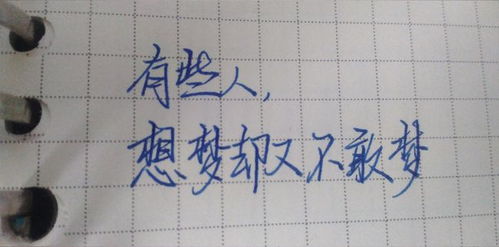 有些人，
想梦却又不敢梦